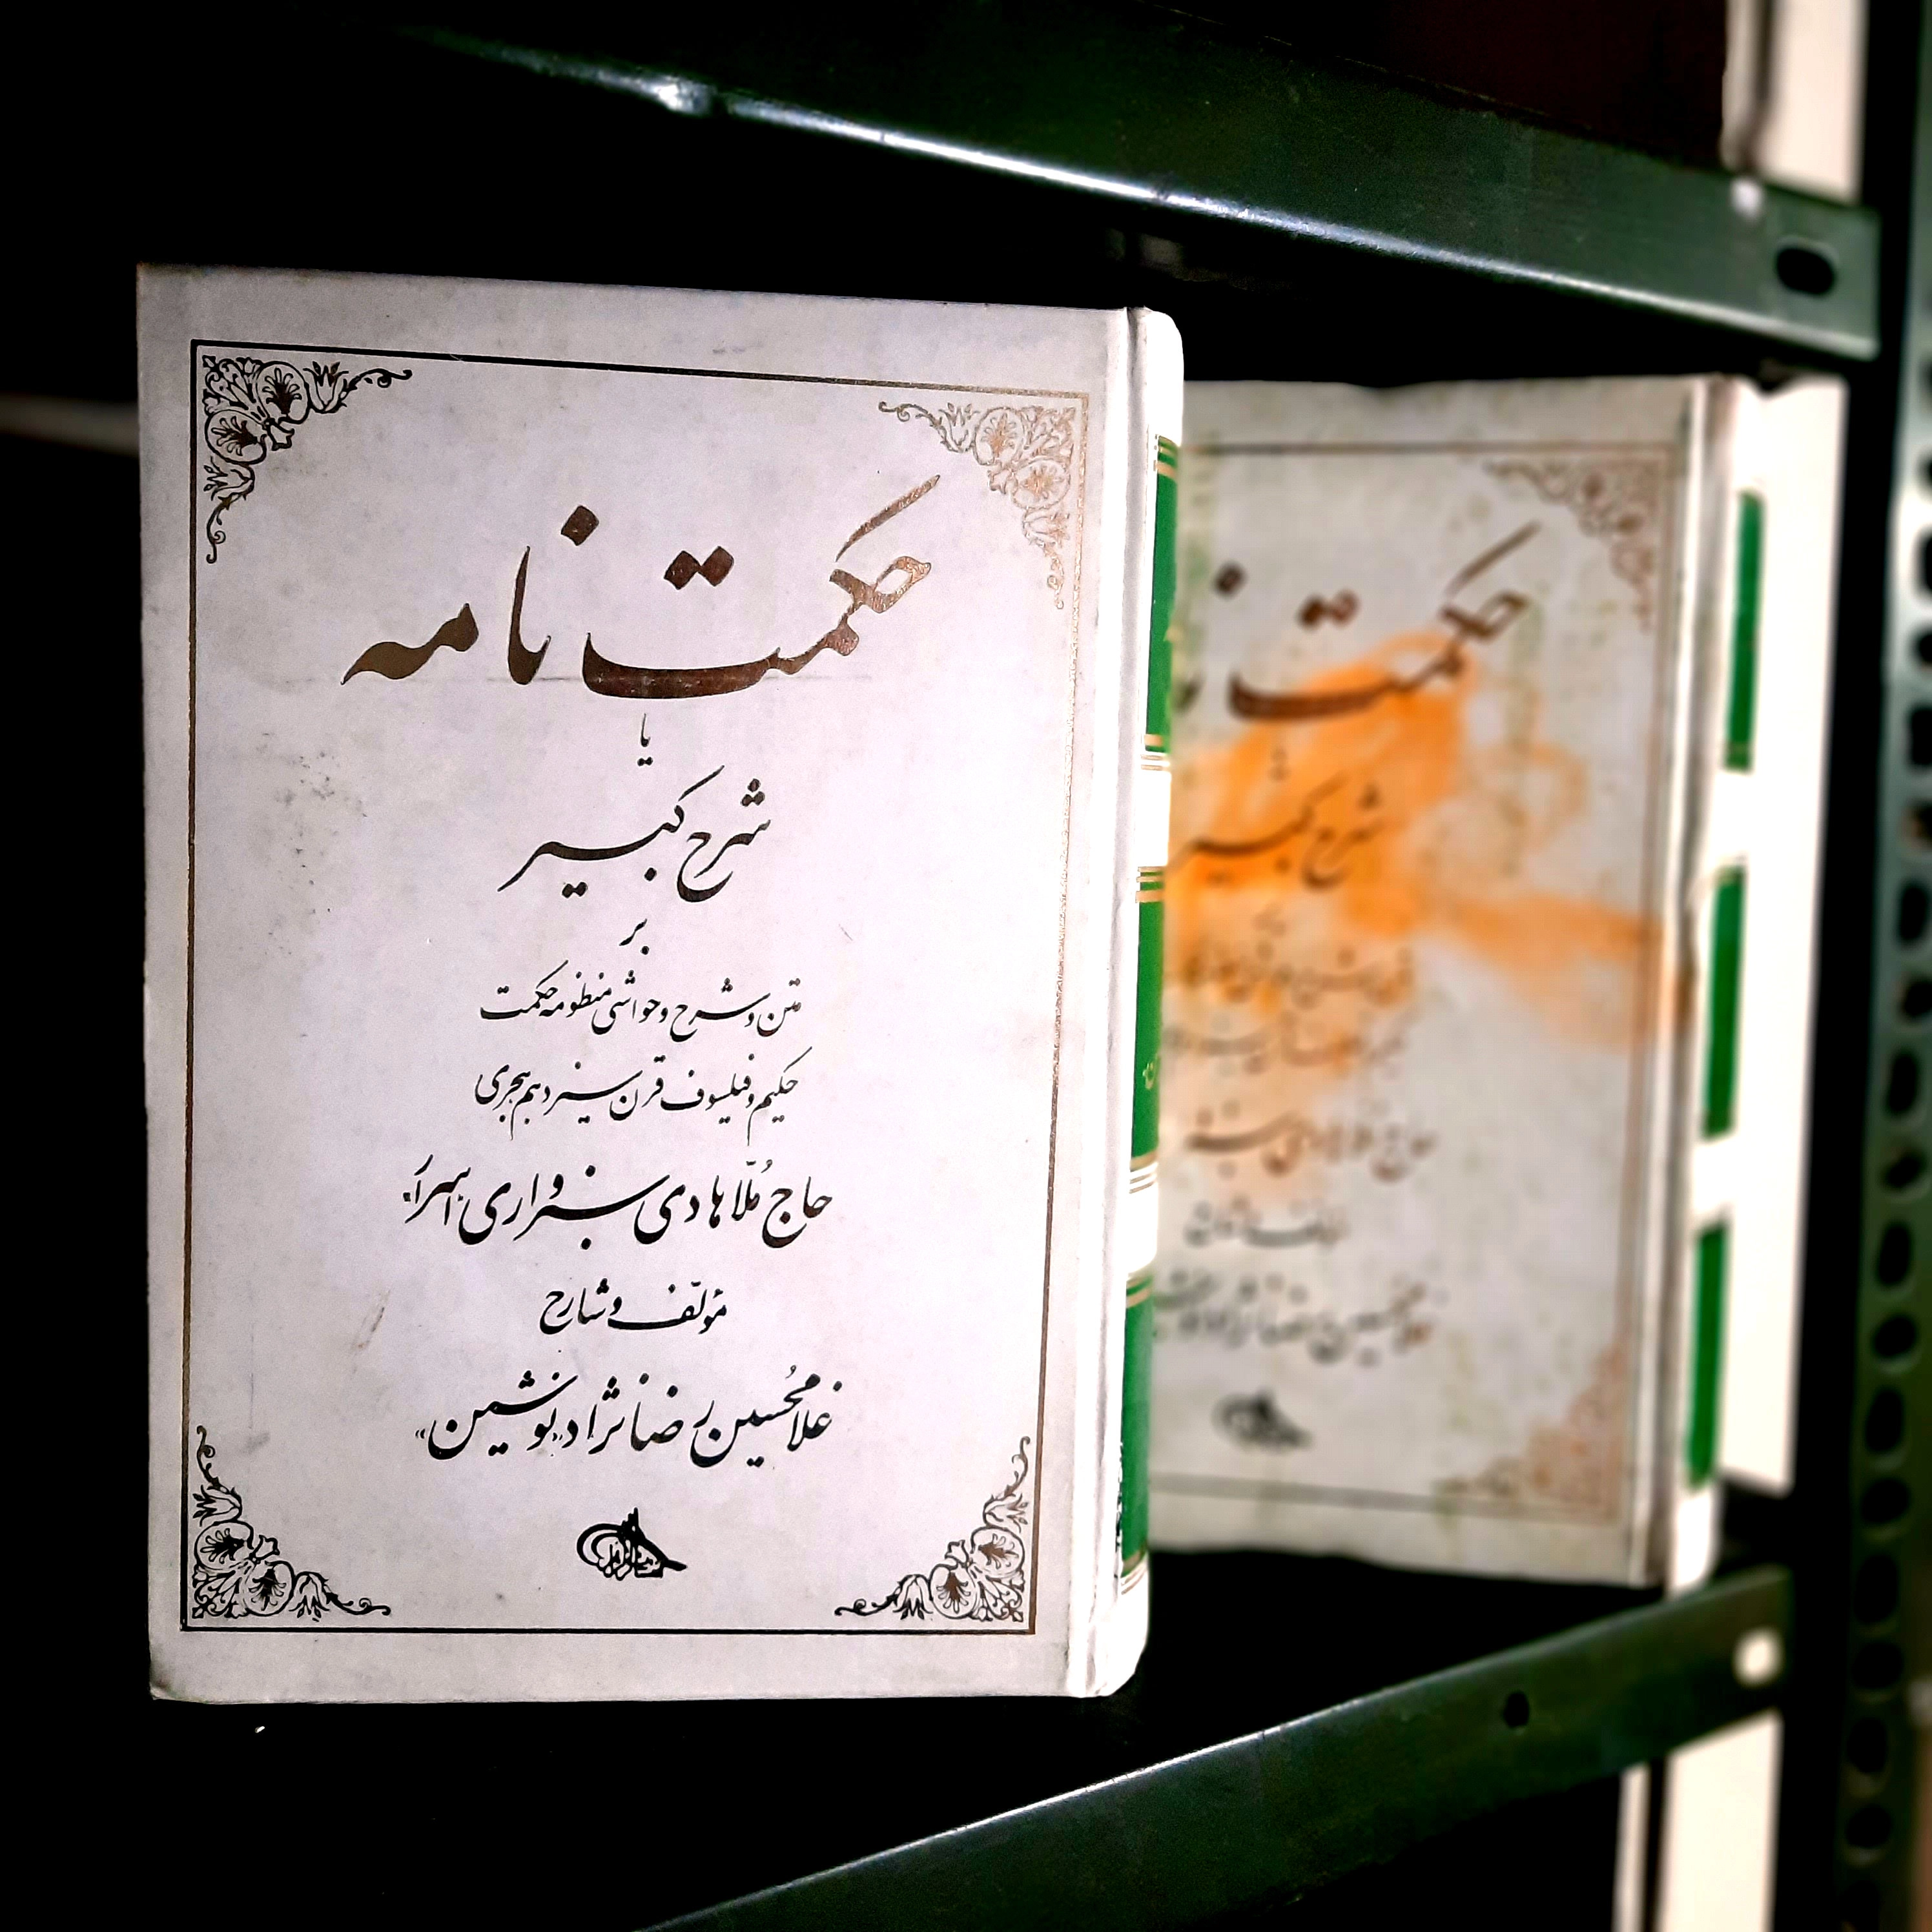 حکمت نامه
یا
شرح کبیر
بر
متن و شرح و حواشی منظومه حکمت
حکیم و فیلسوف قرن سیزدهم هجری
حاج مُلّا هادی سبزواری «اسرار»
مؤلّف و شارح
غلامحُسین رضانژاد «نوشین»
حکمت
شرح کبیر